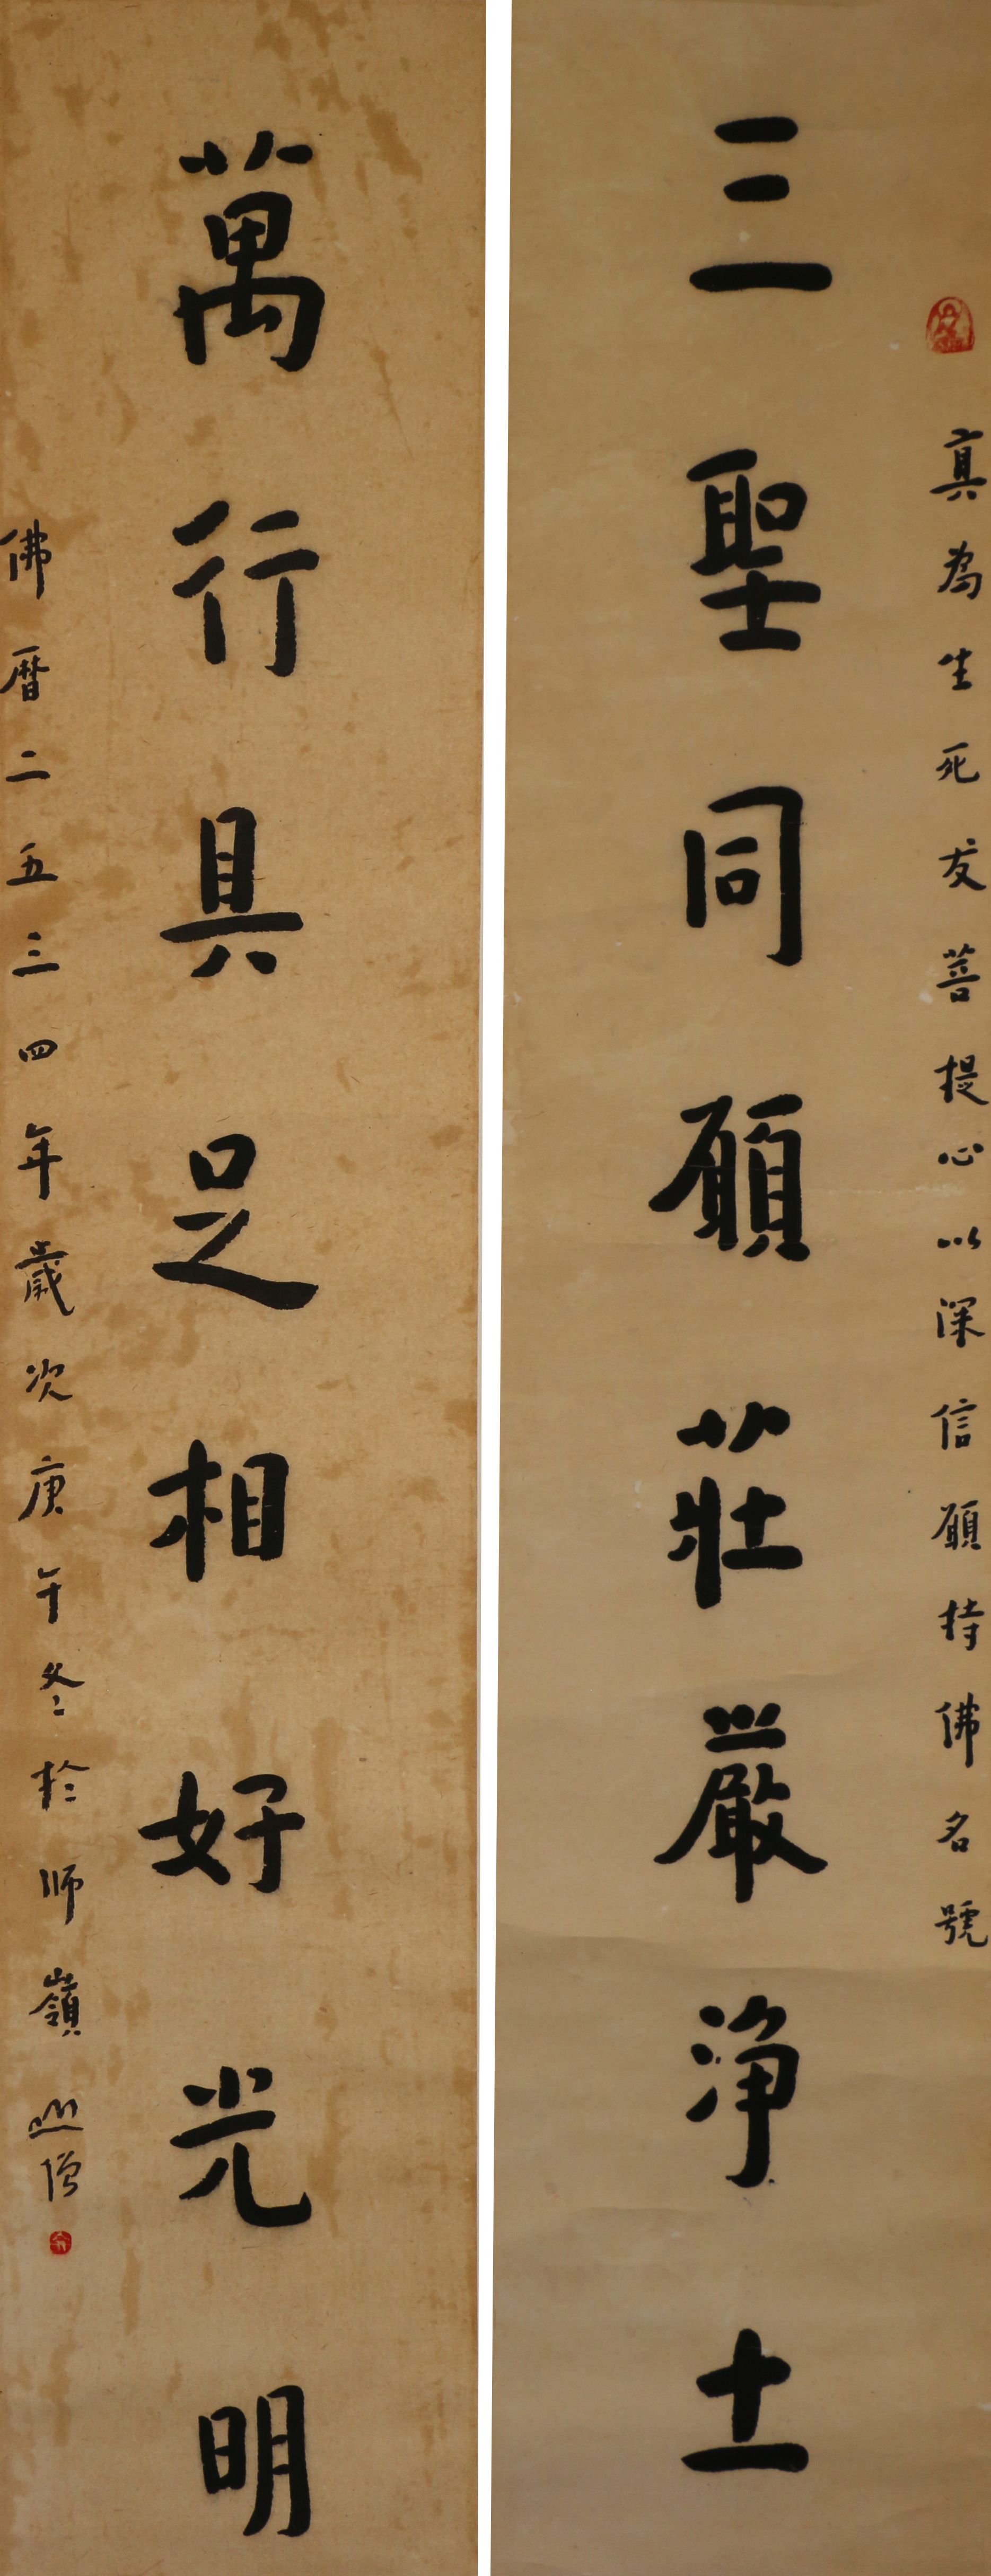 真為生死發菩提心以深信願持佛名號
三聖同願莊嚴淨土
萬行具足相好光明
佛曆二五三四年歲次庚午冬於師嶺
僧